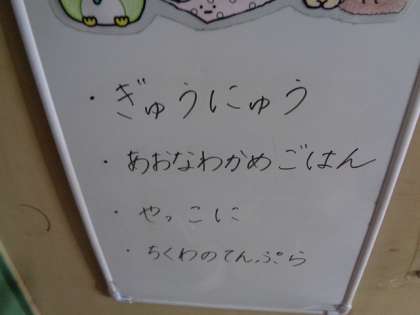 ・ぎゅうにゅう
・あおなわかめごはん
・やっこに
・ちくわのてんぷら